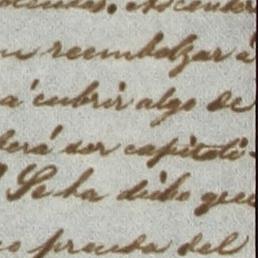 reembolzar á
á cubrir algo de
será dos capitoli-
Se ha dicho que
prueba del